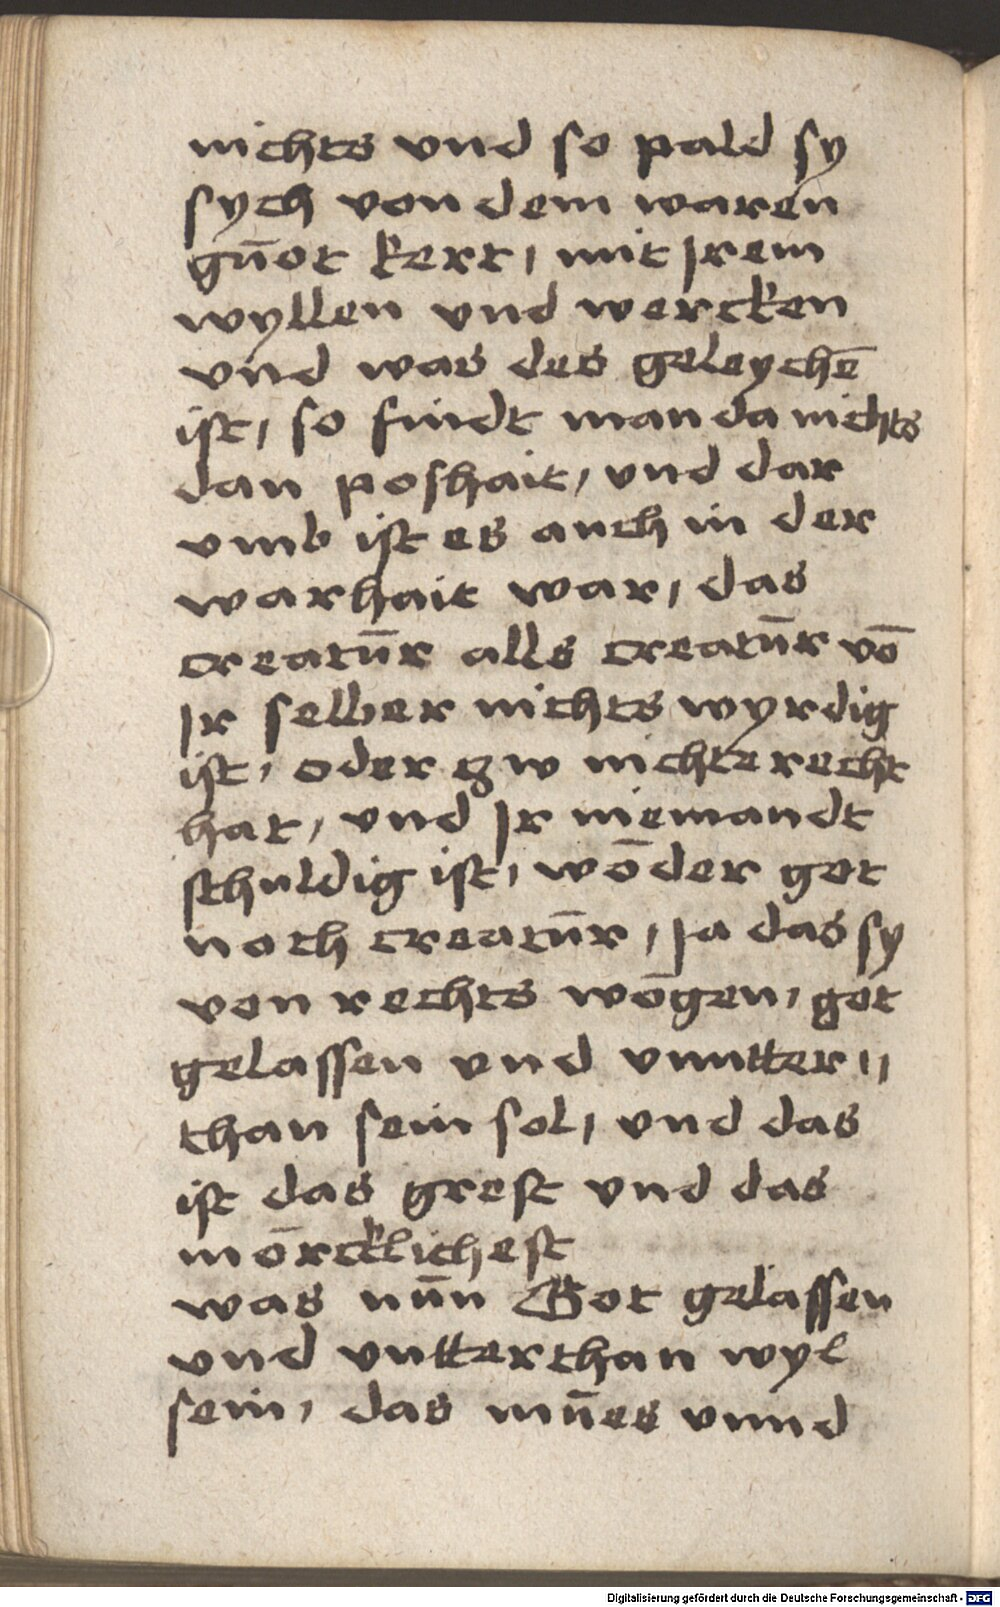 nichts vnd so pald sy
sych von dem waren
gūot kert, mit Jrem
wyllen vnd wercken
vnd was des geleychē
ist, so findt man da nichts
dan poshait, vnd dar
vmb ist es auch in der
warhait war, das
creatūr alls creatūr vō
Jr selber nichts wyrdig
ist, oder zw nichte recht
hat, vnd Jr niemandt
schuldig ist, wōder got
noch creatūr, Ja das sy
von rechts wōgen, got
gelassen vnd vnntter,,
than sein sol, vnd das
ist das grest vnd das
mōrcklichest
was nūn Got gelassen
vnd vntterthan wyl
sein, das mūes vnnd
Digitalisierung gefördert durch die Deutsche Forschungsgemeinschaft - DFG